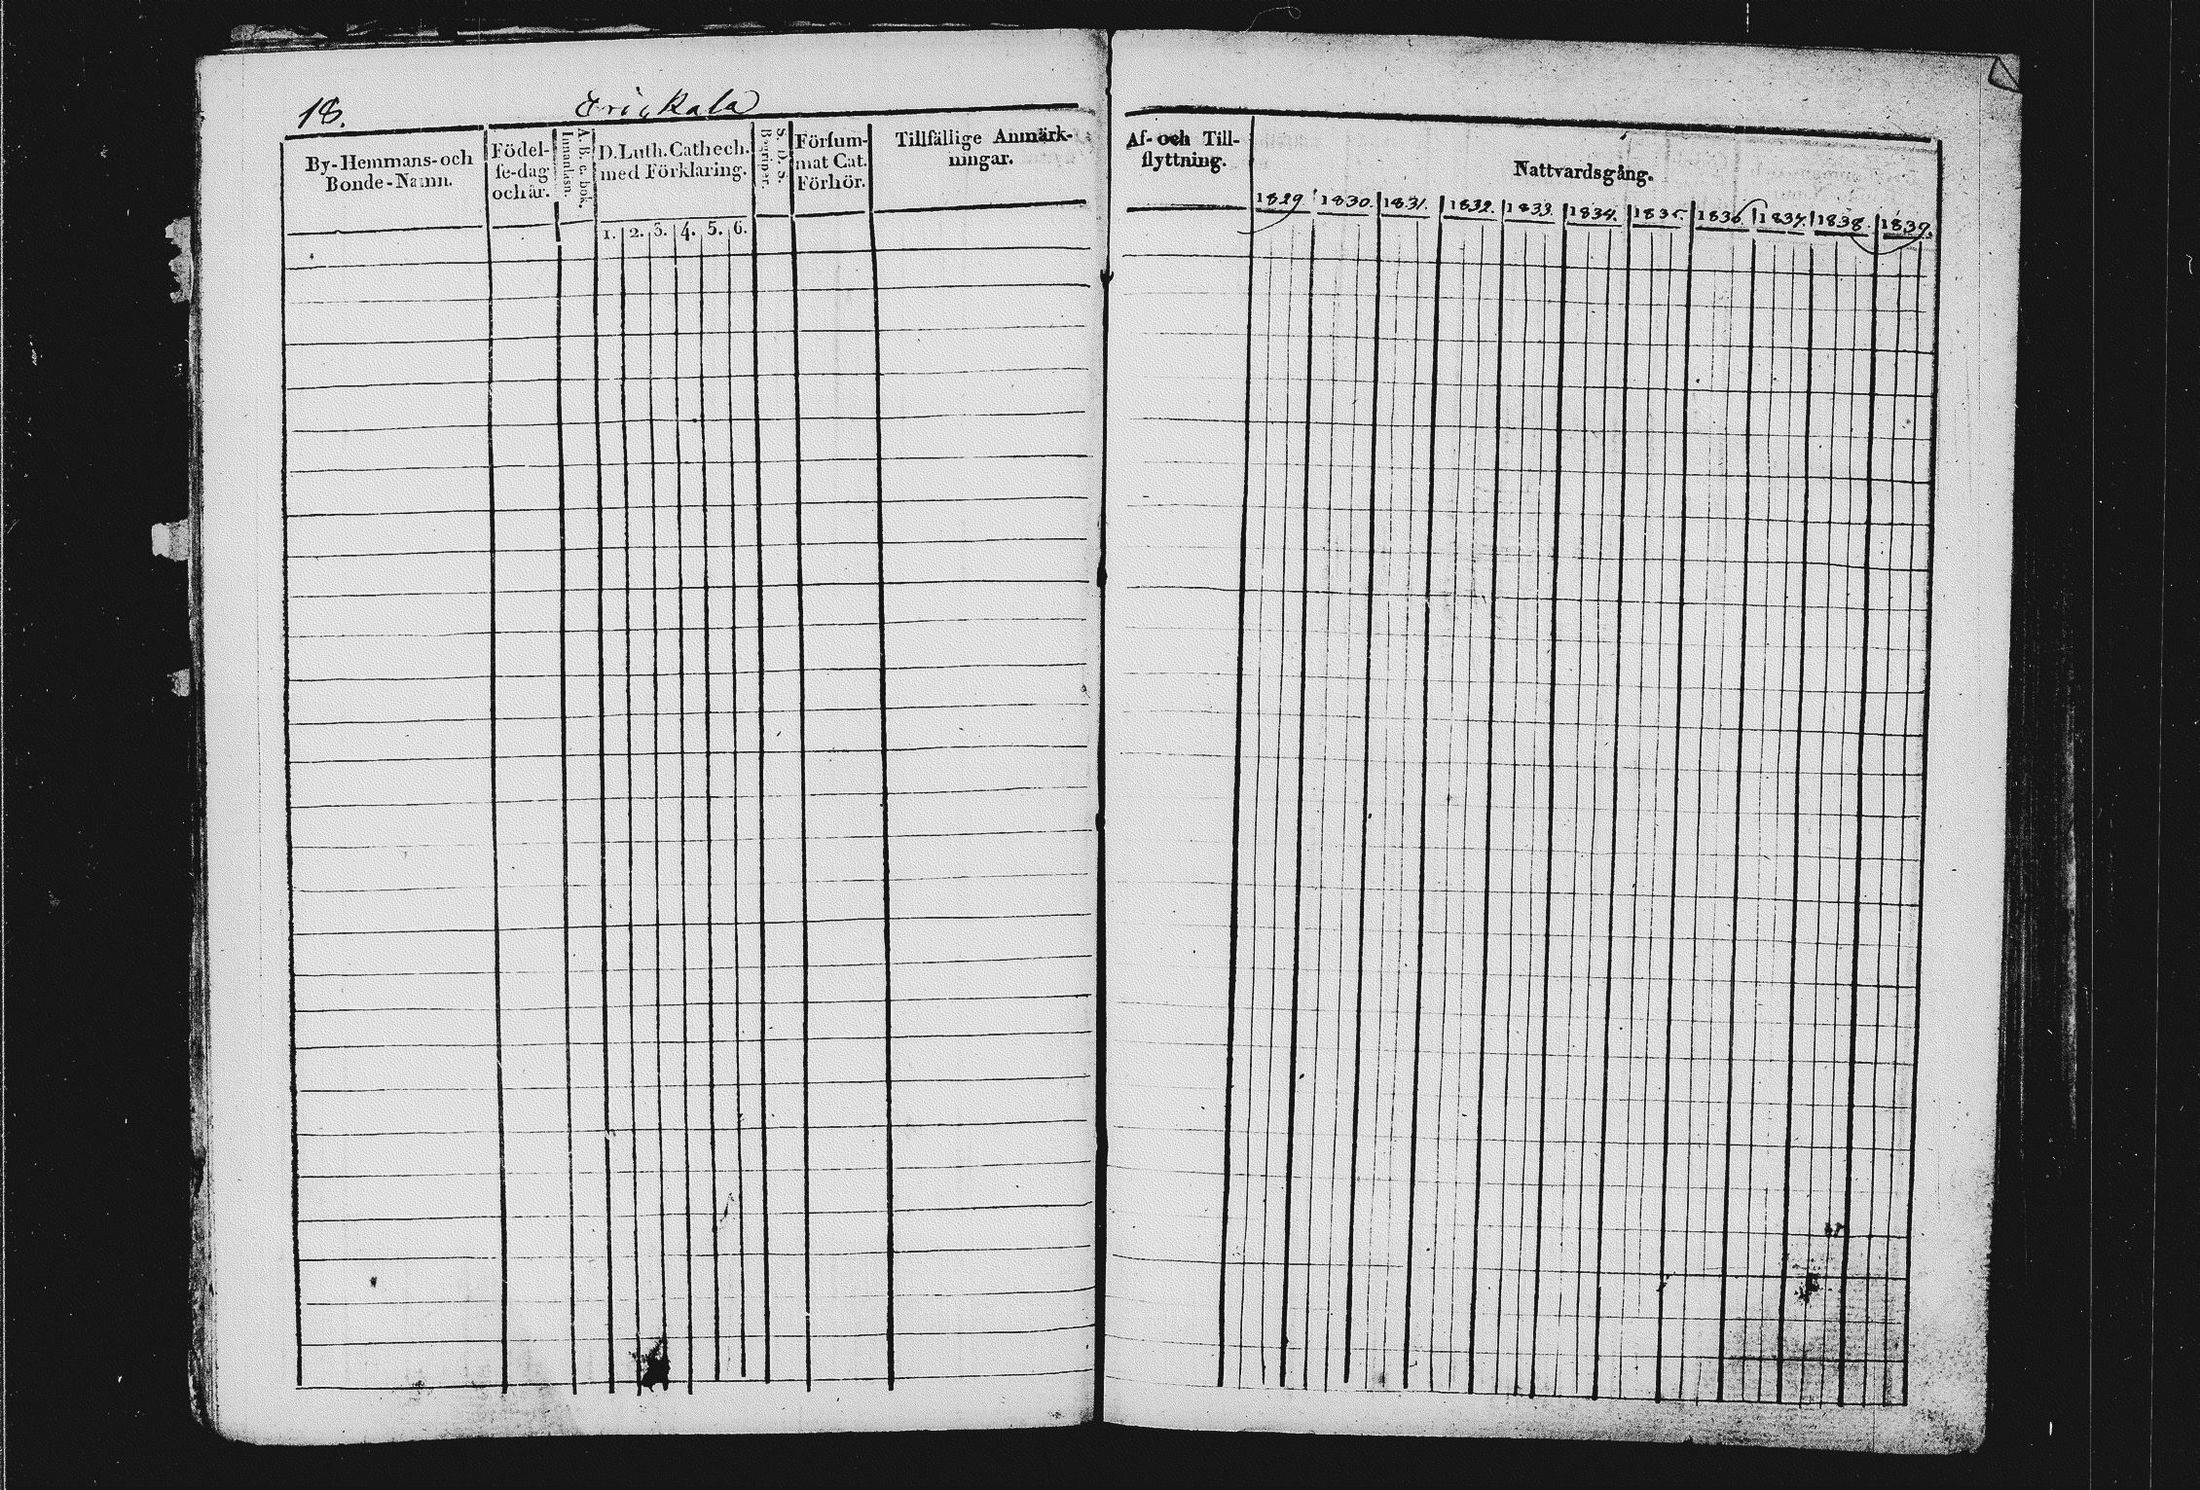 18.
Erickala
By-Hemmans-och
Bonde-Namn.
Födel-
se-dag
och år.
A. B. c. bok.
Innanläsn.
D. Luth. Cathech.
med Förklaring.
1. 2. 3. 4. 5. 6.
S. D. S.
Begriper.
Försum-
mat Cat.
Förhör.
Tillfällige Anmärk-
ningar.
Af- och Till-
flyttning.
Nattvardsgång.
1829 1830. 1831. 1832. 1833. 1834. 1835. 1836 1837. 1838. 1839.